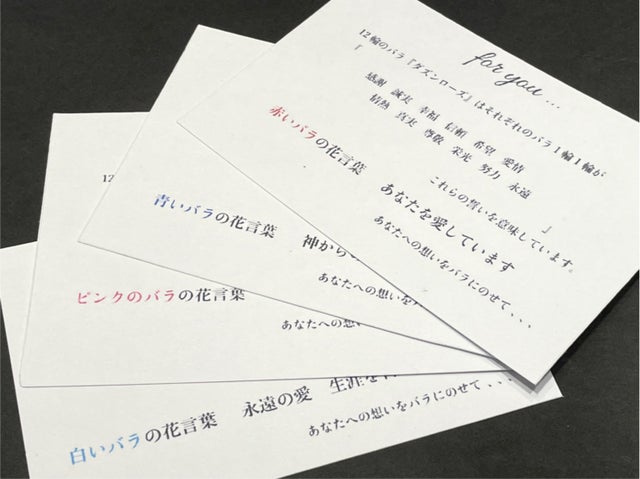 for you...
12輪のバラ『ダズンローズ』はそれぞれのバラ1輪1輪が
「
感謝 誠実 幸福 信頼 希望 愛情
情熱 真実 尊敬 栄光 努力 永遠
」
これらの誓いを意味しています。
赤いバラの花言葉 あなたを愛しています
あなたへの想いをバラにのせて、、、
青いバラの花言葉 神から
あなたへの想いを
12
ピンクのバラの花言葉
あなたへの想い
白いバラの花言葉 永遠の愛 生涯を
あなたへの想いをバラにのせて、、